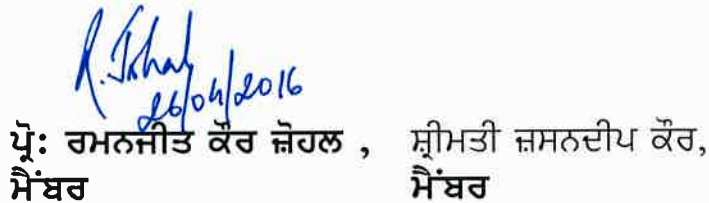 R. Johal
26/04/2016
ਪ੍ਰੋ: ਰਮਨਜੀਤ ਕੌਰ ਜ਼ੋਹਲ , ਸ਼੍ਰੀਮਤੀ ਜ਼ਸਨਦੀਪ ਕੌਰ,
ਮੈਂਬਰ ਮੈਂਬਰ